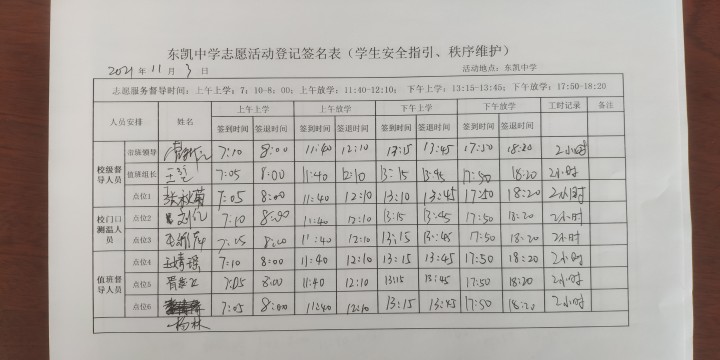 东凯中学志愿活动登记签名表（学生安全指引、秩序维护）
2021 年 11 月 3 日 活动地点：东凯中学
志愿服务督导时间：上午上学：7：10-8：00；上午放学：11:40-12:10； 下午上学：13:15-13:45；下午放学：17:50-18:20
人员安排 姓名 上午上学 上午放学 下午上学 下午放学 工时记录 备注
签到时间 签退时间 签到时间 签退时间 签到时间 签退时间 签到时间 签退时间
校级督导人员 值班领导 7:10 8:00 11:40 12:10 13:15 13:45 17:50 18:20 2小时
值班组长 7:05 8:00 11:40 12:10 13:15 13:45 17:50 18:20 2小时
点位1 7:05 8:00 11:40 12:10 13:10 13:45 17:50 18:20 2小时
校门口测温人员 点位2 7:10 8:00 11:40 12:10 13:15 13:45 17:50 18:20 2小时
点位3 7:05 8:00 11:40 12:10 13:15 13:45 17:50 18:20 2小时
值班督导人员 点位4 王婧瑶 7:10 8:00 11:40 12:10 13:15 13:45 17:50 18:20 2小时
点位5 7:05 8:00 11:40 12:10 13:15 13:45 17:50 18:20 2小时
点位6 7:05 8:00 11:40 12:10 13:15 13:45 17:50 18:20 2小时
杨林